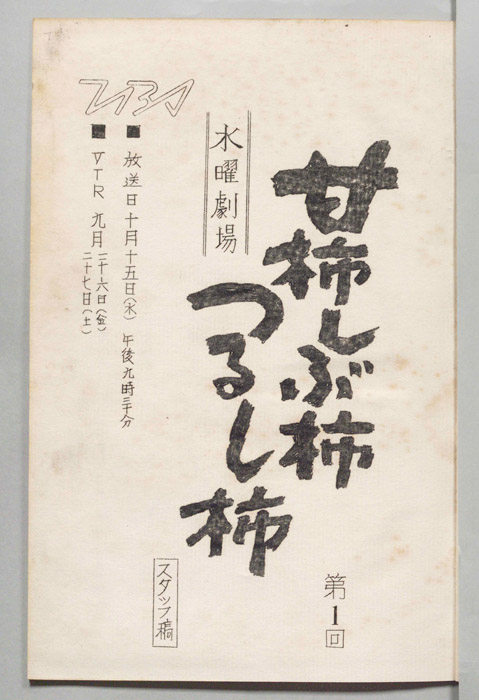 甘柿しぶ柿
つるし柿
第1回
水曜劇場
スタッフ稿
TBS
■ 放送日 十月十五日(水) 午後九時三十分
■ VTR 九月二十六日(金)
二十七日(土)